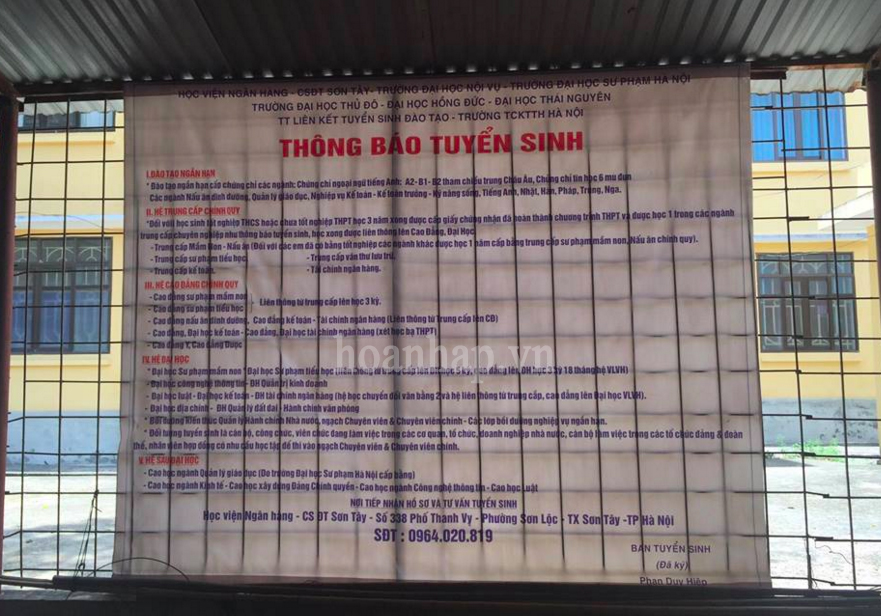 HỌC VIỆN NGÂN HÀNG - CSĐT SƠN TÂY- TRƯỜNG ĐẠI HỌC NỘI VỤ - TRƯỜNG ĐẠI HỌC SƯ PHẠM HÀ NỘI
TRƯỜNG ĐẠI HỌC THỦ ĐÔ - ĐẠI HỌC HỒNG ĐỨC - ĐẠI HỌC THÁI NGUYÊN
TT LIÊN KẾT TUYỂN SINH ĐÀO TẠO - TRƯỜNG TCKTTH HÀ NỘI
THÔNG BÁO TUYỂN SINH
I.ĐÀO TẠO NGẮN HẠN
* Đào tạo ngắn hạn cấp chứng chỉ các ngành; Chứng chỉ ngoại ngữ tiếng Anh: A2- B1- B2 tham chiếu trung Châu Âu, Chứng chỉ tin học 6 mu đun
Các ngành Nấu ăn dinh dưỡng, Quản lý giáo dục, Nghiệp vụ Kế toán - Kế toán trưởng - Kỹ năng sống, Tiếng Anh, Nhật, Hàn, Pháp, Trung, Nga.
II. HỆ TRUNG CẤP CHÍNH QUY
*Đối với học sinh tốt nghiệp THCS hoặc chưa tốt nghiệp THPT học 3 năm xong được cấp giấy chứng nhận đã hoàn thành chương trình THPT và được học 1 trong các ngành
trung cấp chuyên nghiệp như thông báo tuyển sinh, học xong được liên thông lên Cao Đẳng, Đại Học.
- Trung cấp Mầm Non - Nấu ăn (Đối với các em đã có bằng tốt nghiệp các ngành khác được học 1 năm cấp bằng trung cấp sư phạm mầm non, Nấu ăn chính quy).
- Trung cấp sư phạm tiểu học. - Trung cấp văn thư lưu trữ.
- Trung cấp kế toán. - Tài chính ngân hàng.
III. HỆ CAO ĐẲNG CHÍNH QUY
- Cao đẳng sư phạm mầm non
- Cao đẳng sư phạm tiểu học
Liên thông từ trung cấp lên học 3 kỳ.
- Cao đẳng nấu ăn dinh dưỡng, Cao đẳng kế toán - Tài chính ngân hàng (Liên thông từ Trung cấp lên CĐ)
- Cao đẳng, Đại học kế toán - Cao đẳng, Đại học tài chính ngân hàng (xét học bạ THPT)
- Cao đẳng Y, Cao đẳng Dược
IV. HỆ ĐẠI HỌC
* Đại học Sư phạm mầm non * Đại học Sư phạm tiểu học (liên thông từ trung cấp lên ĐH học 5 kỳ, cao đẳng lên, ĐH học 3 kỳ 18 tháng hệ VLVH)
- Đại học công nghệ thông tin - ĐH Quản trị kinh doanh
- Đại học luật - Đại học kế toán - ĐH tài chính ngân hàng (hệ học chuyển đổi văn bằng 2 và hệ liên thông từ trung cấp, cao đẳng lên Đại học VLVH).
- Đại học địa chính - ĐH Quản lý đất đai - Hành chính văn phòng
* Bồi dưỡng kiến thức Quản lý Hành chính Nhà nước, ngạch Chuyên viên & Chuyên viên chính - Các lớp bồi dưỡng nghiệp vụ ngắn hạn.
* Đối tượng tuyển sinh là cán bộ, công chức, viên chức đang làm việc trong các cơ quan, tổ chức, doanh nghiệp nhà nước, cán bộ làm việc trong các tổ chức đảng & đoàn
thể, nhân viên hợp đồng có nhu cầu học tập để thi vào ngạch Chuyên viên & Chuyên viên chính.
V. HỆ SAU ĐẠI HỌC
- Cao học ngành Quản lý giáo dục (Do trường Đại học Sư phạm Hà Nội cấp bằng)
- Cao học ngành Kinh tế - Cao học xây dựng Đảng Chính quyền - Cao học ngành Công nghệ thông tin - Cao học Luật
NƠI TIẾP NHẬN HỒ SƠ VÀ TƯ VẤN TUYỂN SINH
Học viện Ngân hàng - CS ĐT Sơn Tây - Số 338 Phố Thanh Vỵ - Phường Sơn Lộc - TX Sơn Tây -TP Hà Nội
SĐT : 0964.020.819
BAN TUYỂN SINH
(Đã ký)
Phan Duy Hiệp
hoanhap.vn